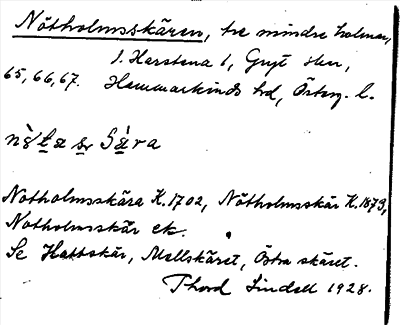 Nötholmsskären, tre mindre holmar,
I. Harstena 1, Gryt skn,
65, 66, 67. Hammarkinds hd, Österg. l.
Notholmsskära K. 1702, Nötholmsskär K. 1873,
Notholmsskär ek.
Se Hattskär, Mellskäret, Östra skäret.
Thord Lindell 1928.